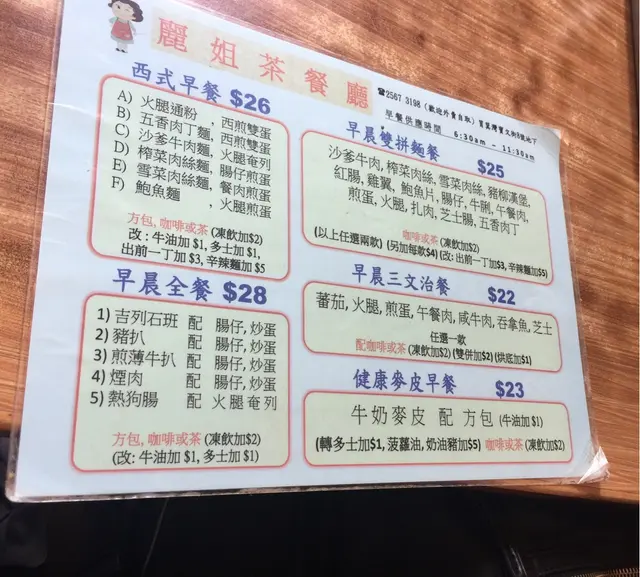 麗姐茶餐廳
☎2567 3198 (歡迎外賣自取) 筲箕灣寶文街8號地下
早餐供應時間 6:30am - 11:30am
西式早餐 $26
A) 火腿通粉 , 西煎雙蛋
B) 五香肉丁麵, 西煎雙蛋
C) 沙爹牛肉麵, 火腿奄列
D) 榨菜肉絲麵, 腸仔煎蛋
E) 雪菜肉絲麵, 餐肉煎蛋
F) 鮑魚麵 , 火腿煎蛋
方包, 咖啡或茶 (凍飲加$2)
改 : 牛油加 $1, 多士加 $1,
出前一丁加 $3, 辛辣麵加 $5
早晨全餐 $28
1) 吉列石班 配 腸仔, 炒蛋
2) 豬扒 配 腸仔, 炒蛋
3) 煎薄牛扒 配 腸仔, 炒蛋
4) 煙肉 配 腸仔, 炒蛋
5) 熱狗腸 配 火腿奄列
方包, 咖啡或茶 (凍飲加$2)
(改: 牛油加 $1, 多士加 $1)
早晨雙拼麵餐 $25
沙爹牛肉, 榨菜肉絲, 雪菜肉絲, 豬柳漢堡,
紅腸, 雞翼, 鮑魚片, 腸仔, 牛脷, 午餐肉,
煎蛋, 火腿, 扎肉, 芝士腸, 五香肉丁
咖啡或茶 (凍飲加$2)
(以上任選兩款) (另加每款$4) (改: 出前一丁加$3, 辛辣麵加$5)
早晨三文治餐 $22
蕃茄, 火腿, 煎蛋, 午餐肉, 咸牛肉, 吞拿魚, 芝士
任選一款
配咖啡或茶 (凍飲加$2) (雙併加$2) (烘底加$1)
健康麥皮早餐 $23
牛奶麥皮 配 方包 (牛油加 $1)
(轉多士加$1, 菠蘿油, 奶油豬加$5) 咖啡或茶 (凍飲加$2)